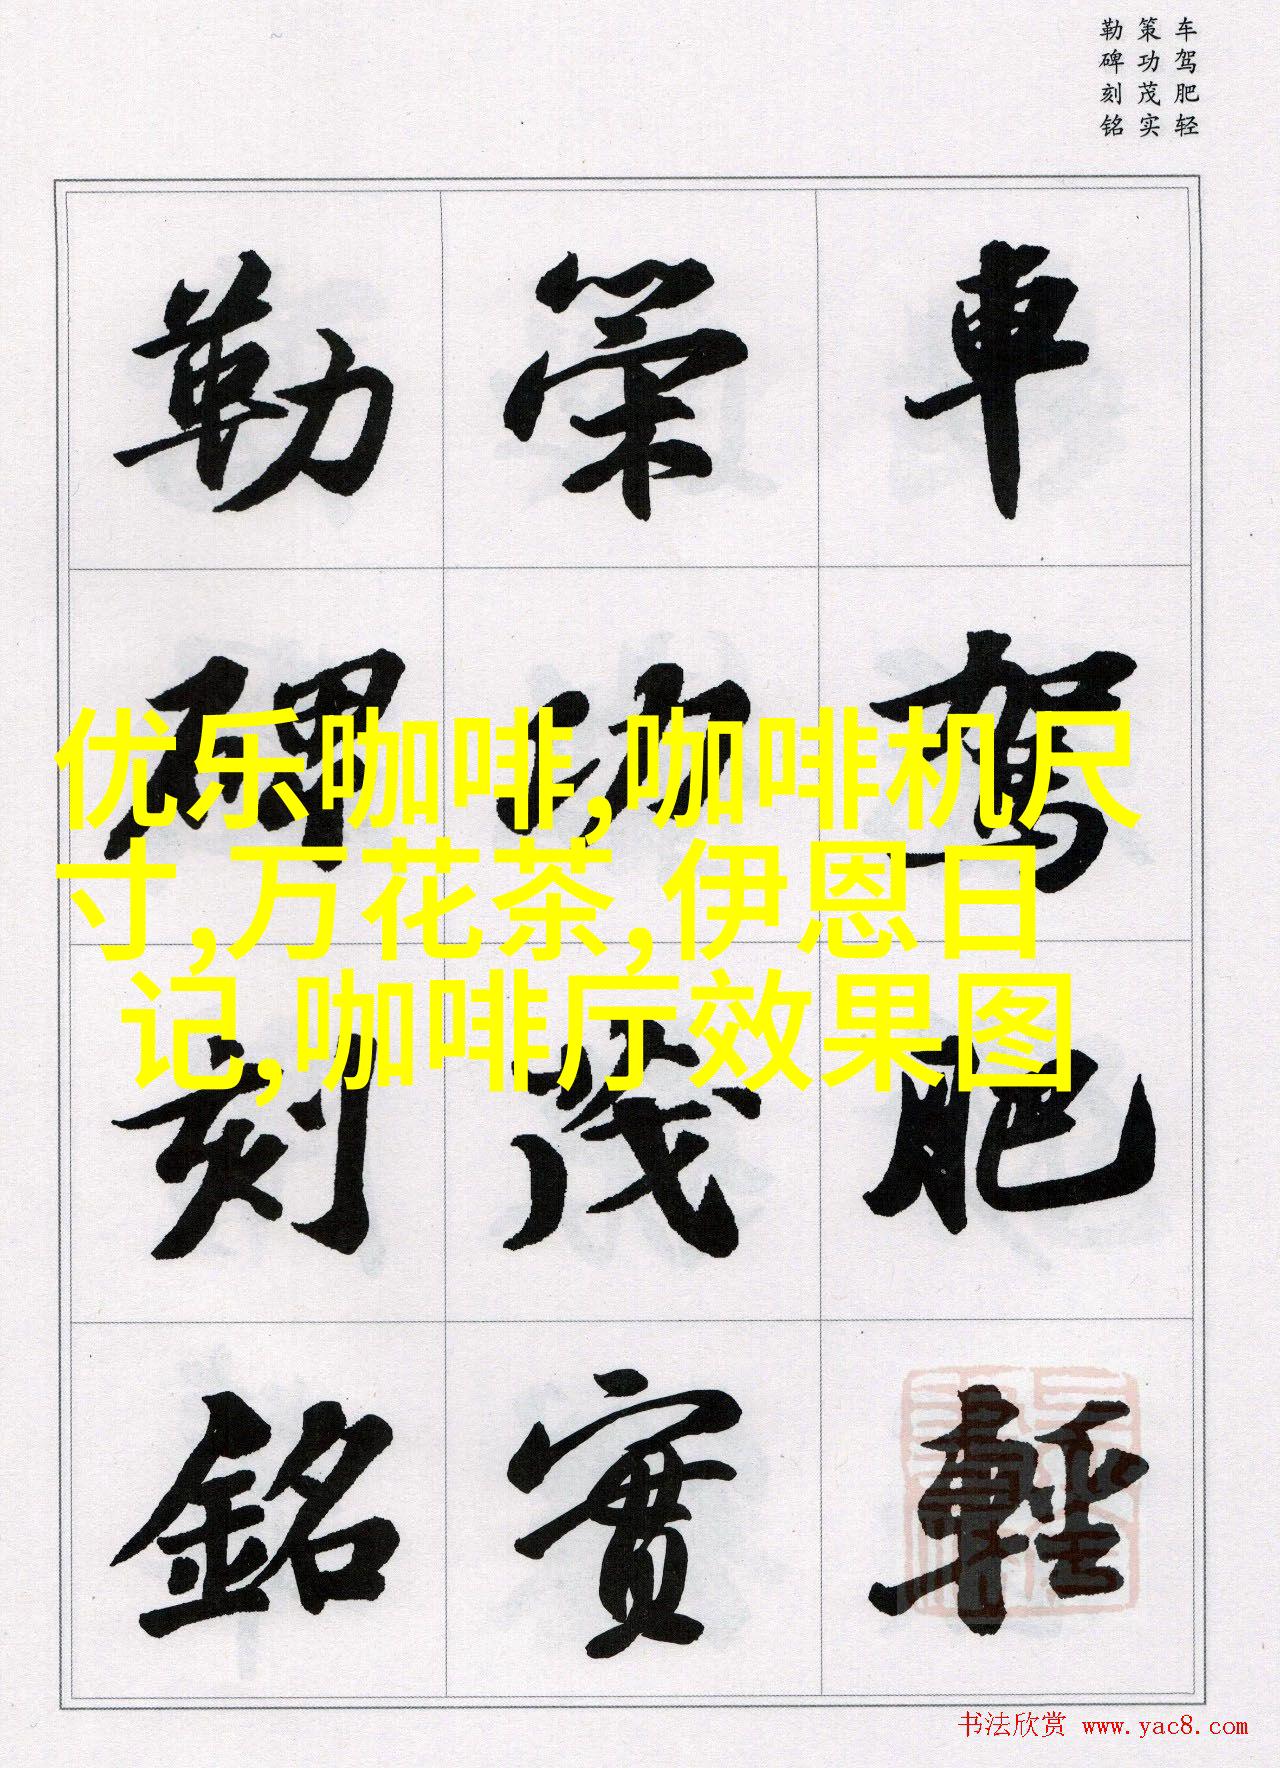 车驾肥轻
策功茂实
勒碑刻铭
車駕肥輕
策功茂實
勒碑刻銘
优乐咖啡,咖啡机尺
寸,万花茶,伊恩日
记,咖啡厅效果图
书法欣赏 www.yac8.com